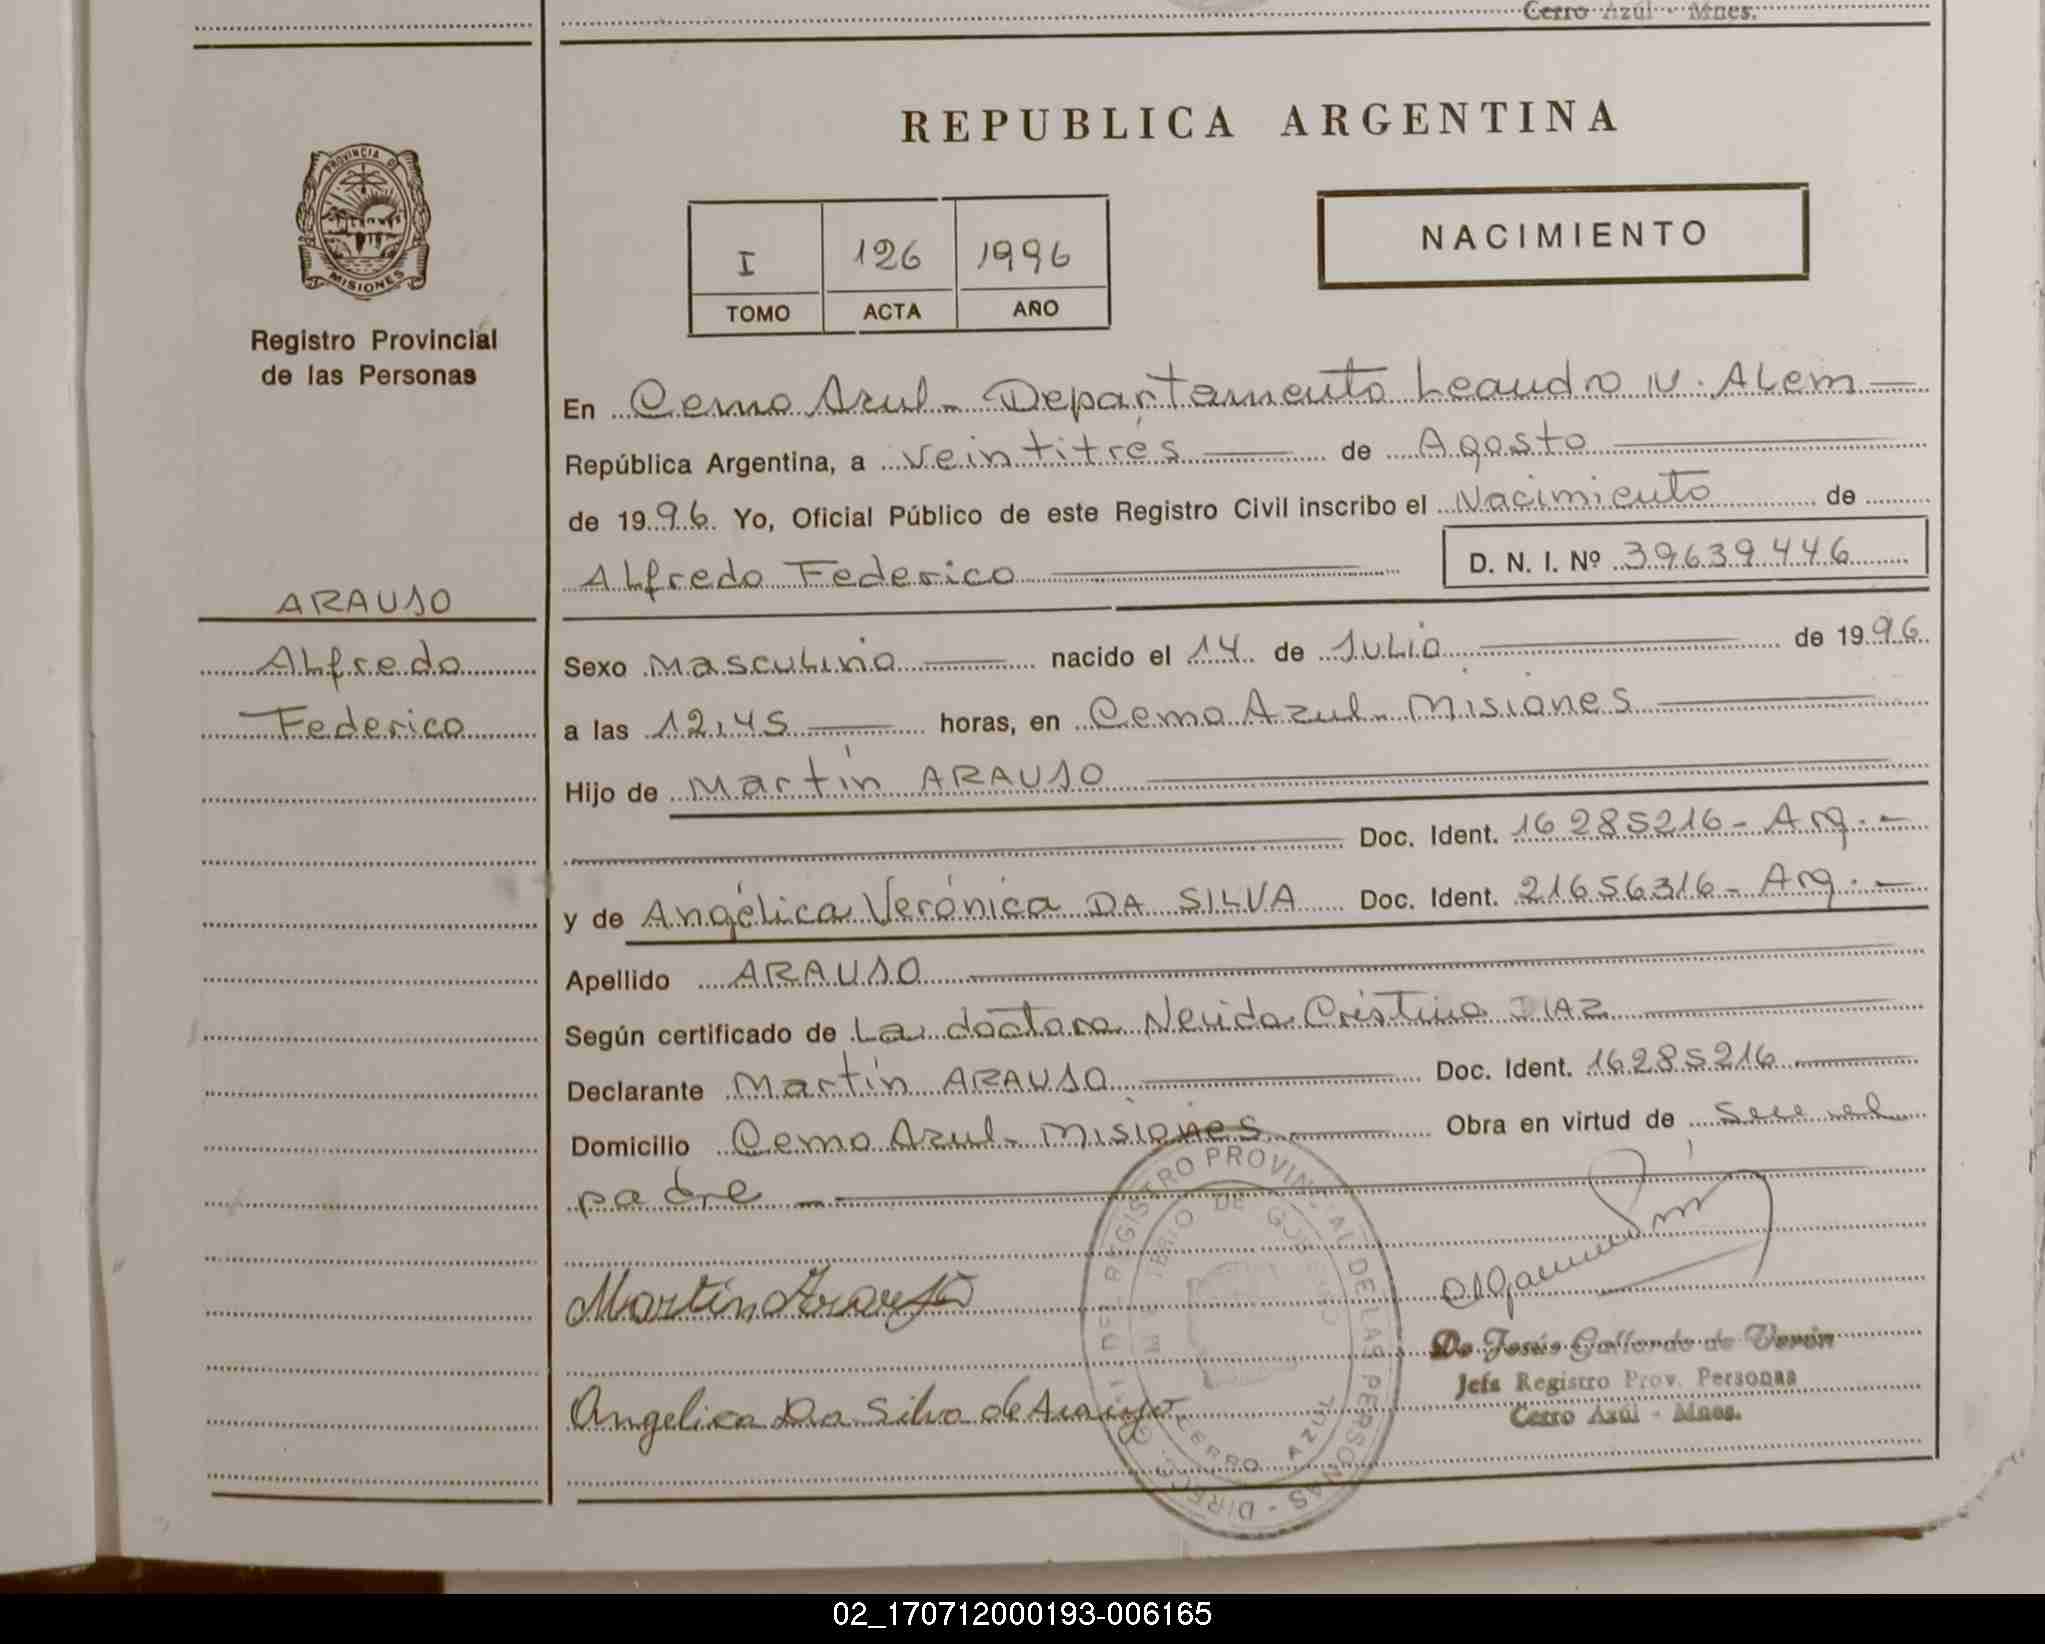 Cerro Azúl - Mnes.
REPUBLICA ARGENTINA
NACIMIENTO
I 126 1996
TOMO ACTA AÑO
PROVINCIA DE
MISIONES
Registro Provincial
de las Personas
En Cerro Azul - Departamento Leandro N. Alem
República Argentina, a veintitrés de Agosto
de 1996 Yo, Oficial Público de este Registro Civil inscribo el Nacimiento de
Alfredo Federico D. N. I. Nº 39639446
ARAUJO
Alfredo
Federico
Sexo Masculino nacido el 14 de Julio de 1996
a las 12,45 horas, en Cerro Azul - Misiones
Hijo de Martín ARAUJO
Doc. Ident. 16285216 - Arg. -
y de Angélica Verónica DA SILVA Doc. Ident. 21656316 - Arg. -
Apellido ARAUJO
Según certificado de La doctora Nerida Cristina DIAZ
Declarante Martín ARAUJO Doc. Ident. 16285216
Domicilio Cerro Azul - Misiones Obra en virtud de ser el
padre
Martin Araujo
Angelica Da Silva de Araujo
REGISTRO PROVINCIAL DE LAS PERSONAS - DIRECC.
DE
CERRO AZUL
De Jesús Gallardo de Verón
Jefa Registro Prov. Personas
Cerro Azúl - Mnes.
02_170712000193-006165